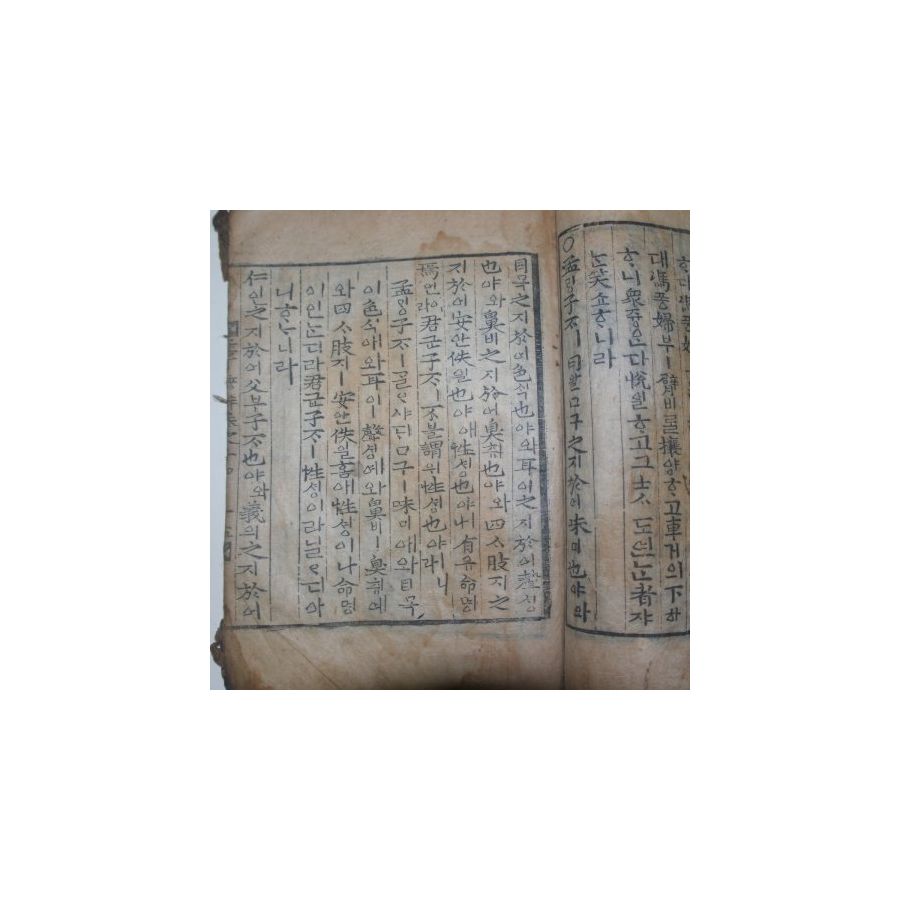 대馮풍婦부ㅣ臂비ᄅᆞᆯ攘양ᄒᆞ고車거의下하
ᄒᆞ니衆즁은다悅열ᄒᆞ고그士ᄉᆞ도연ᄂᆞᆫ者쟈
ᄂᆞᆫ笑쇼ᄒᆞ니라
○孟ᄆᆡᆼ子ᄌᆞㅣ曰왈口구之지於어味미也야와
目목之지於어色ᄉᆡᆨ也야와耳이之지於어聲셩
也야와鼻비之지於어臭취也야와四ᄉᆞ肢지之
지於어安안佚일也야애性셩也야ㅣ나有유命명
焉언이라君군子ᄌᆞㅣ不블謂위性셩也야ㅣ라니
孟ᄆᆡᆼ子ᄌᆞㅣᄀᆞᆯᄋᆞ샤ᄃᆡ口구ㅣ味미애와目목
이色ᄉᆡᆨ애와耳이ㅣ聲셩에와鼻비ㅣ臭취예
와四ᄉᆞ肢지ㅣ安안佚일홈애性셩이나命명
이인ᄂᆞᆫ디라君군子ᄌᆞㅣ性셩이라닐ᄋᆞ디아
니ᄒᆞᄂᆞ니라
仁인之지於어父부子ᄌᆞ也야와義의之지於어